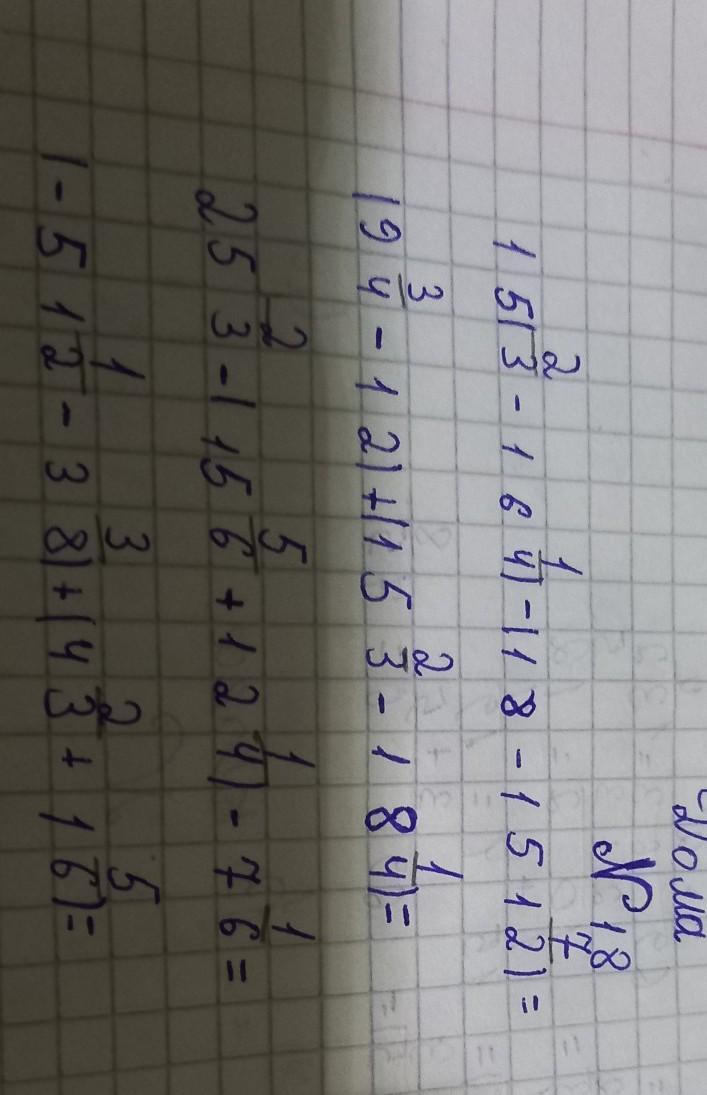 Дома
№ 18
15(2/3 - 16 1/4) - (18 - 15 7/12) =
(9 3/4 - 12) + (15 2/3 - 18 1/4) =
25 2/3 - (15 5/6 + 12 1/4) - 7 1/6 =
(-5 1/12 - 3 3/8) + (4 2/3 + 1 5/6) =